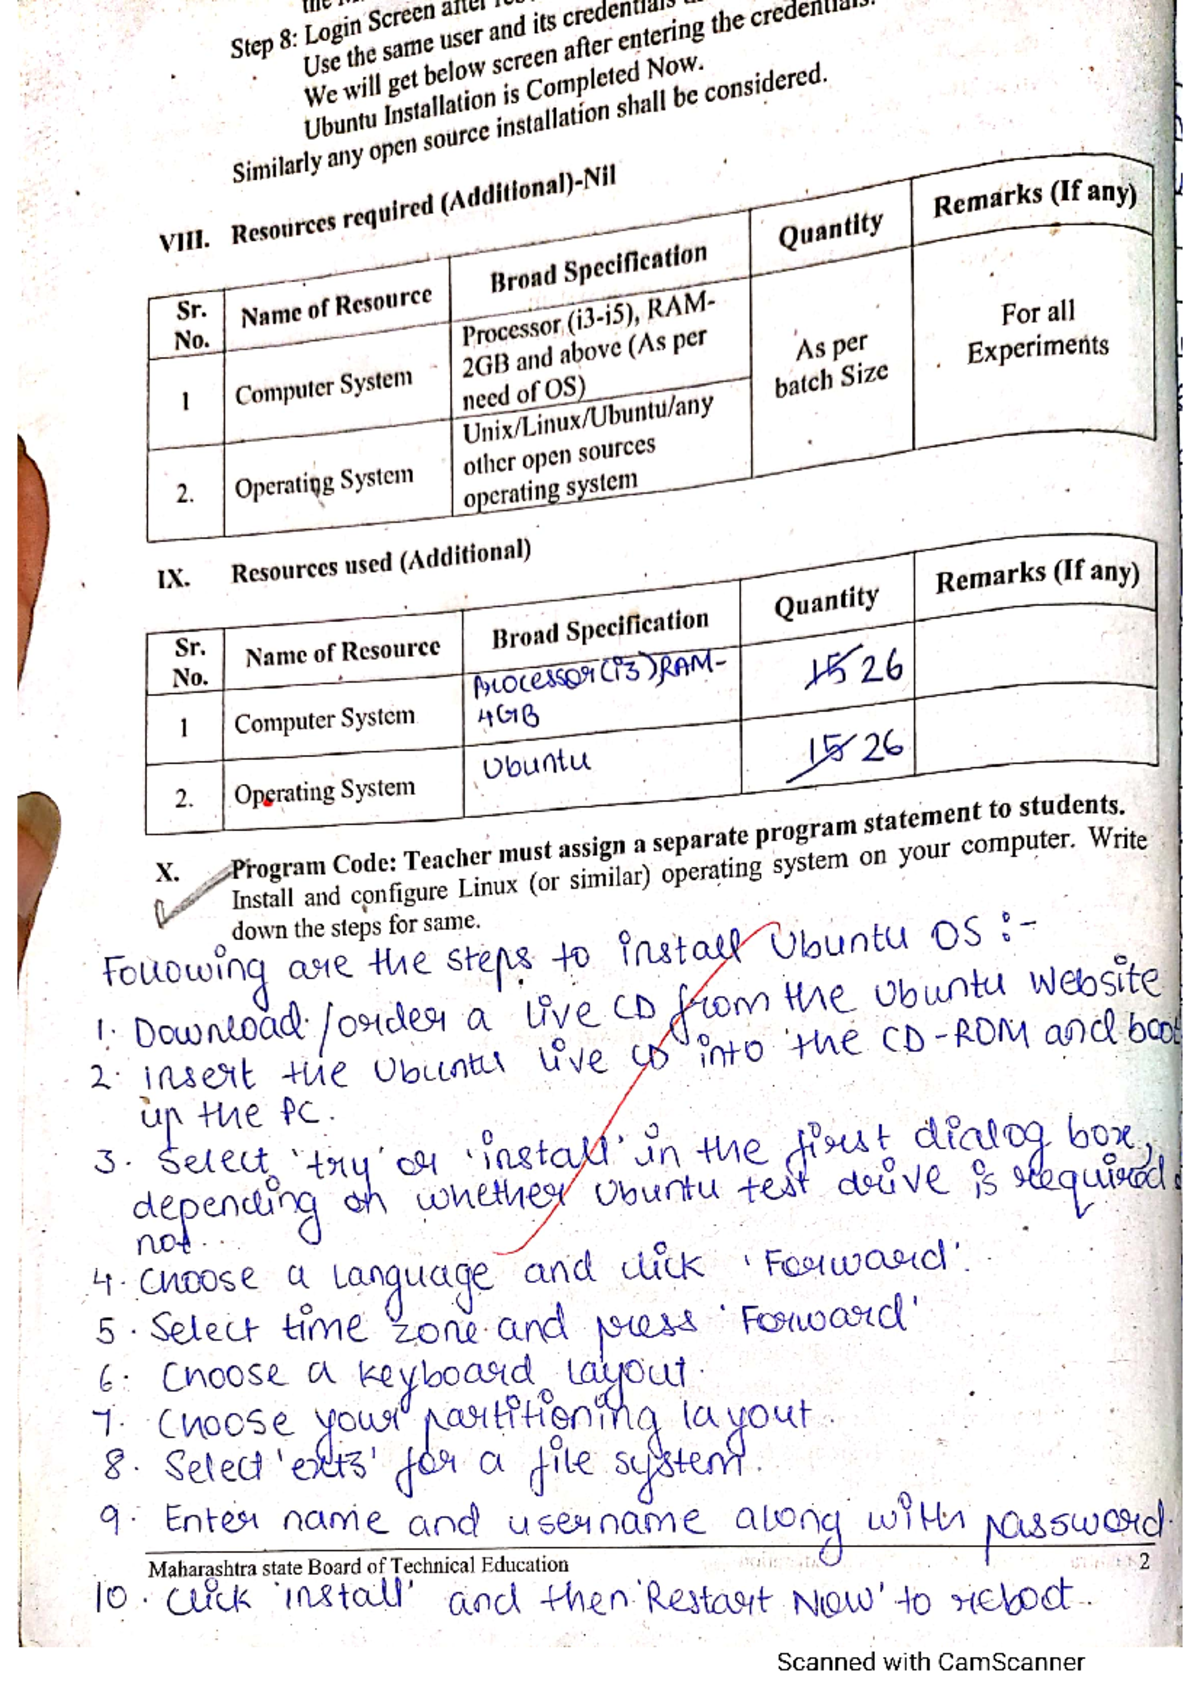 Step 8: Login Screen after
Use the same user and its credentials
We will get below screen after entering the credentials.
Ubuntu Installation is Completed Now.
Similarly any open source installation shall be considered.
VIII. Resources required (Additional)-Nil
Sr. No. Name of Resource Broad Specification Quantity Remarks (If any)
1 Computer System Processor (i3-i5), RAM-
2GB and above (As per
need of OS)
As per
batch Size
For all
Experiments
2. Operating System Unix/Linux/Ubuntu/any
other open sources
operating system
IX. Resources used (Additional)
Sr. No. Name of Resource Broad Specification Quantity Remarks (If any)
1 Computer System Processor (i3) RAM-
4GB
15 26
2. Operating System Ubuntu 15 26
X. Program Code: Teacher must assign a separate program statement to students.
Install and configure Linux (or similar) operating system on your computer. Write
down the steps for same.
Following are the steps to install Ubuntu OS :-
1. Download /order a live CD from the Ubuntu Website
2. insert the Ubuntu live CD into the CD-ROM and boot
up the PC.
3. Select 'try' or 'install' in the first dialog box,
depending on whether Ubuntu test drive is required
not.
4. Choose a language and click 'Forward'.
5. Select time zone and press 'Forward'
6. Choose a keyboard layout.
7. Choose your partitioning layout.
8. Select 'ext3' for a file system.
9. Enter name and username along with password.
Maharashtra state Board of Technical Education 2
10. Click 'install' and then 'Restart Now' to reboot.
Scanned with CamScanner